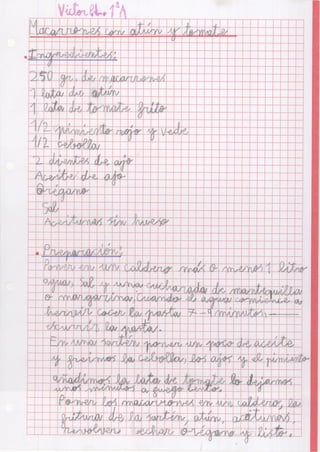 Víctor 1ºA
Macarrones con atún y tomate
• Ingredientes:
250 gr. de macarrones
1 lata de atún
1 lata de tomate frito
1/2 pimiento rojo y vede
1/2 cebolla
2 dientes de ajo
Aceite de ajo
Orégano
Sal
Aceitunas sin hueso
• Preparación:
Poner en un caldero más o menos 1 litro
agua, sal y una cucharada de mantequilla
o margarina. Cuando el agua comience a
hervir cocer la pasta 7-9 minutos
escurrir la pasta.
En una sartén poner un poco de aceite
y freimos la cebolla, los ajos y el pimiento
añadimos la lata de tomate lo dejamos
unos minutos a fuego lento.
Poner los macarrones en un caldero, la
fritura de la sartén, atún, aceitunas,
revolver echar orégano y listo.